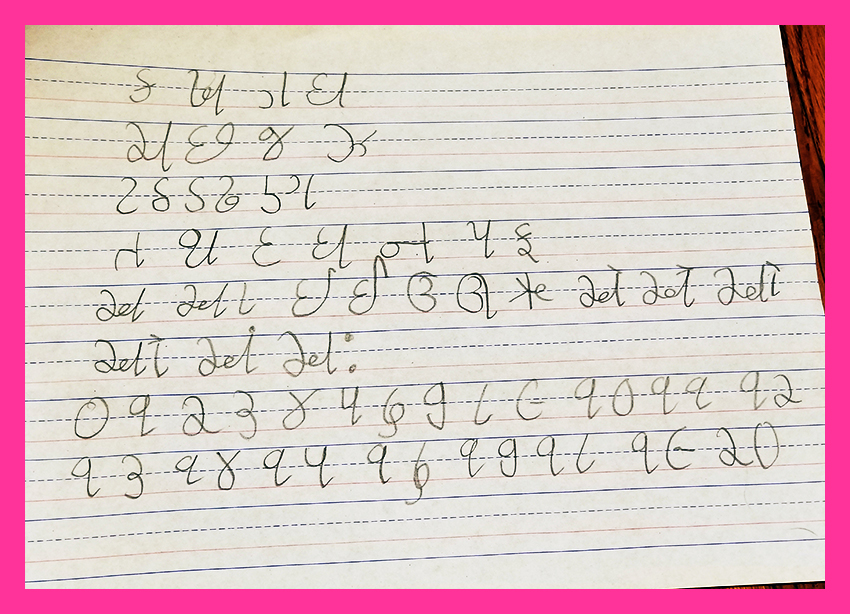 ક ખ ગ ઘ
ચ છ જ ઝ
ટ ઠ ડ ઢ ણ
ત થ દ ધ ન પ ફ
અ આ ઇ ઈ ઉ ઊ ઋ એ ઐ ઓ
ઔ અં અઃ
૦ ૧ ૨ ૩ ૪ ૫ ૬ ૭ ૮ ૯ ૧૦ ૧૧ ૧૨
૧૩ ૧૪ ૧૫ ૧૬ ૧૭ ૧૮ ૧૯ ૨૦